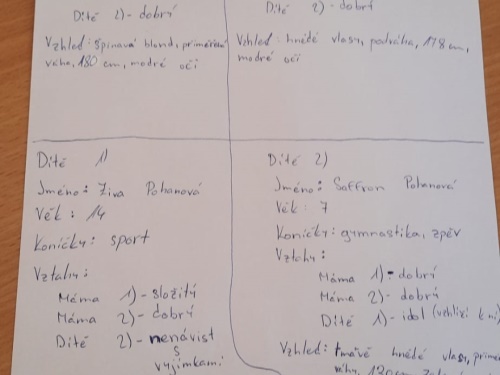 Dítě 2) - dobrý
Vzhled: špinavá blond, přiměřená
váha, 180 cm, modré oči
Dítě 2) - dobrý
Vzhled: hnědé vlasy, podváha, 178 cm,
modré oči
Dítě 1)
Jméno: Živa Pohanová
Věk: 14
Koníčky: sport
Vztahy:
Máma 1) - složitý
Máma 2) - dobrý
Dítě 2) - nenávist
s
vyjímkami
Dítě 2)
Jméno: Saffron Pohanová
Věk: 7
Koníčky: gymnastika, zpěv
Vztahy:
Máma 1) - dobrý
Máma 2) - dobrý
Dítě 1) - idol (vzhlíží k ní)
Vzhled: tmavě hnědé vlasy,
váhy,